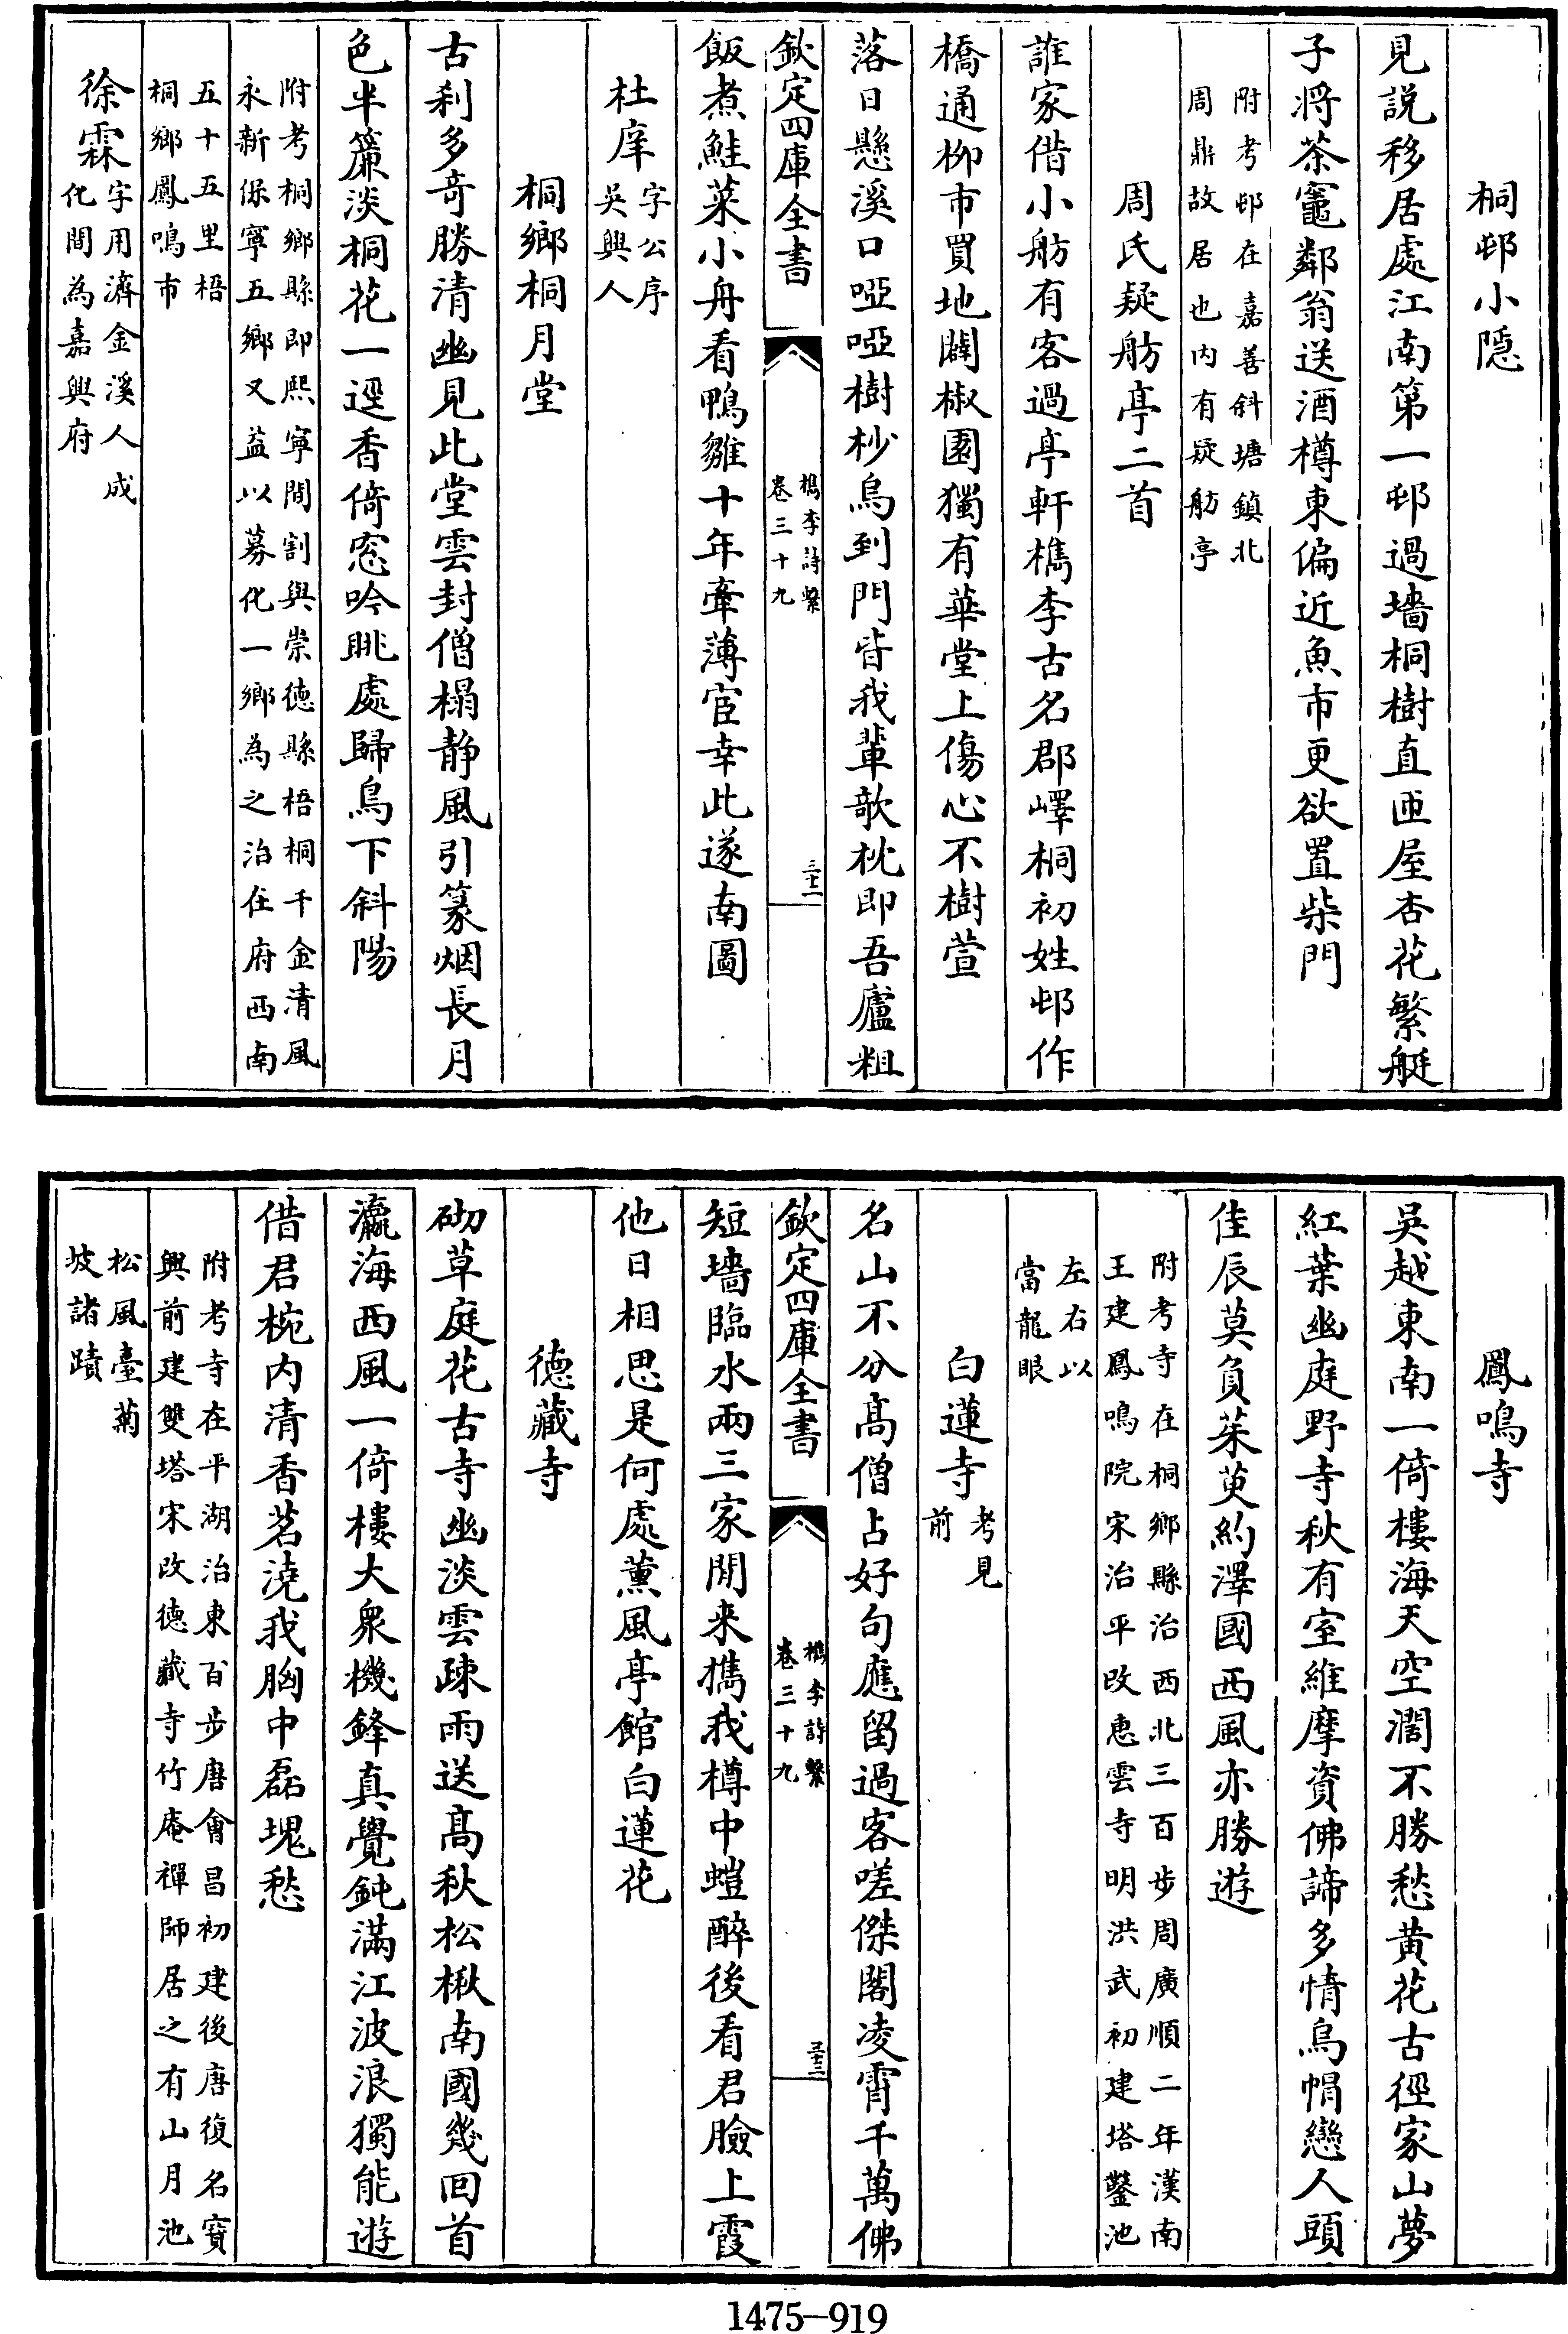 桐邨小隠
見説移居處江南第一邨過墻桐樹直匝屋杏花繁艇
子將茶竈鄰翁送酒樽東偏近魚市更欲置柴門
附考邨在嘉善斜塘鎮北
周鼎故居也内有疑舫亭
周氏疑舫亭二首
誰家借小舫有客過亭軒檇李古名郡嶧桐初姓邨作
橋通柳市買地闢椒園獨有華堂上傷心不樹萱
落日懸溪口啞啞樹杪烏到門皆我輩歌枕即吾廬粗
欽定四庫全書
檇李詩繫
卷三十九
三十二
飯煮鮭菜小舟看鴨雛十年牽薄宦幸此遂南圖
杜庠字公序
吳興人
桐鄉桐月堂
古刹多竒勝清幽見此堂雲封僧榻静風引篆烟長月
色半簾淡桐花一逕香倚窓吟眺處歸鳥下斜陽
附考桐鄉縣即熙寧間割與崇德縣梧桐千金清風
永新保寧五鄉又益以募化一鄉為之治在府西南
五十五里梧
桐鄉鳳鳴市
徐霖字用濟金溪人成
化間為嘉興府
鳳鳴寺
吳越東南一倚樓海天空濶不勝愁黄花古徑家山夢
紅葉幽庭野寺秋有室維摩資佛諦多情烏帽戀人頭
佳辰莫負茱萸約澤國西風亦勝遊
附考寺在桐鄉縣治西北三百步周廣順二年漢南
王建鳳鳴院宋治平改惠雲寺明洪武初建塔鑿池
左右以
當龍眼
白蓮寺考見
前
名山不分髙僧占好句應留過客嗟傑閣凌霄千萬佛
欽定四庫全書
檇李詩繫
卷三十九
三十三
短墻臨水兩三家閒来携我樽中螘醉後看君臉上霞
他日相思是何處薰風亭館白蓮花
德藏寺
砌草庭花古寺幽淡雲疎雨送髙秋松楸南國幾回首
瀛海西風一倚樓大衆機鋒真覺鈍滿江波浪獨能遊
借君椀内清香茗澆我胸中磊塊愁
附考寺在平湖治東百步唐會昌初建後唐復名寶
興前建雙塔宋改德藏寺竹庵禪師居之有山月池
松風臺菊
坡諸蹟
1475-919